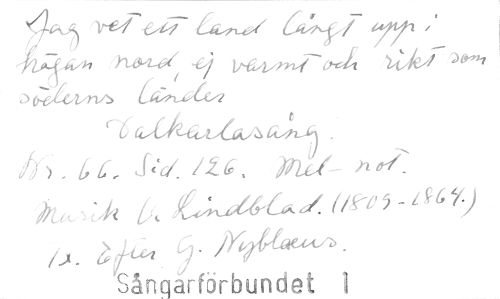 Jag vet ett land långt upp i
högan nord, ej varmt och rikt som
söderns länder
Dalkarlasång.
Nr. 66. Sid. 126. Mel- not.
Musik O. Lindblad. (1809-1864.)
Tx. Efter G. Nyblæus.
Sångarförbundet 1